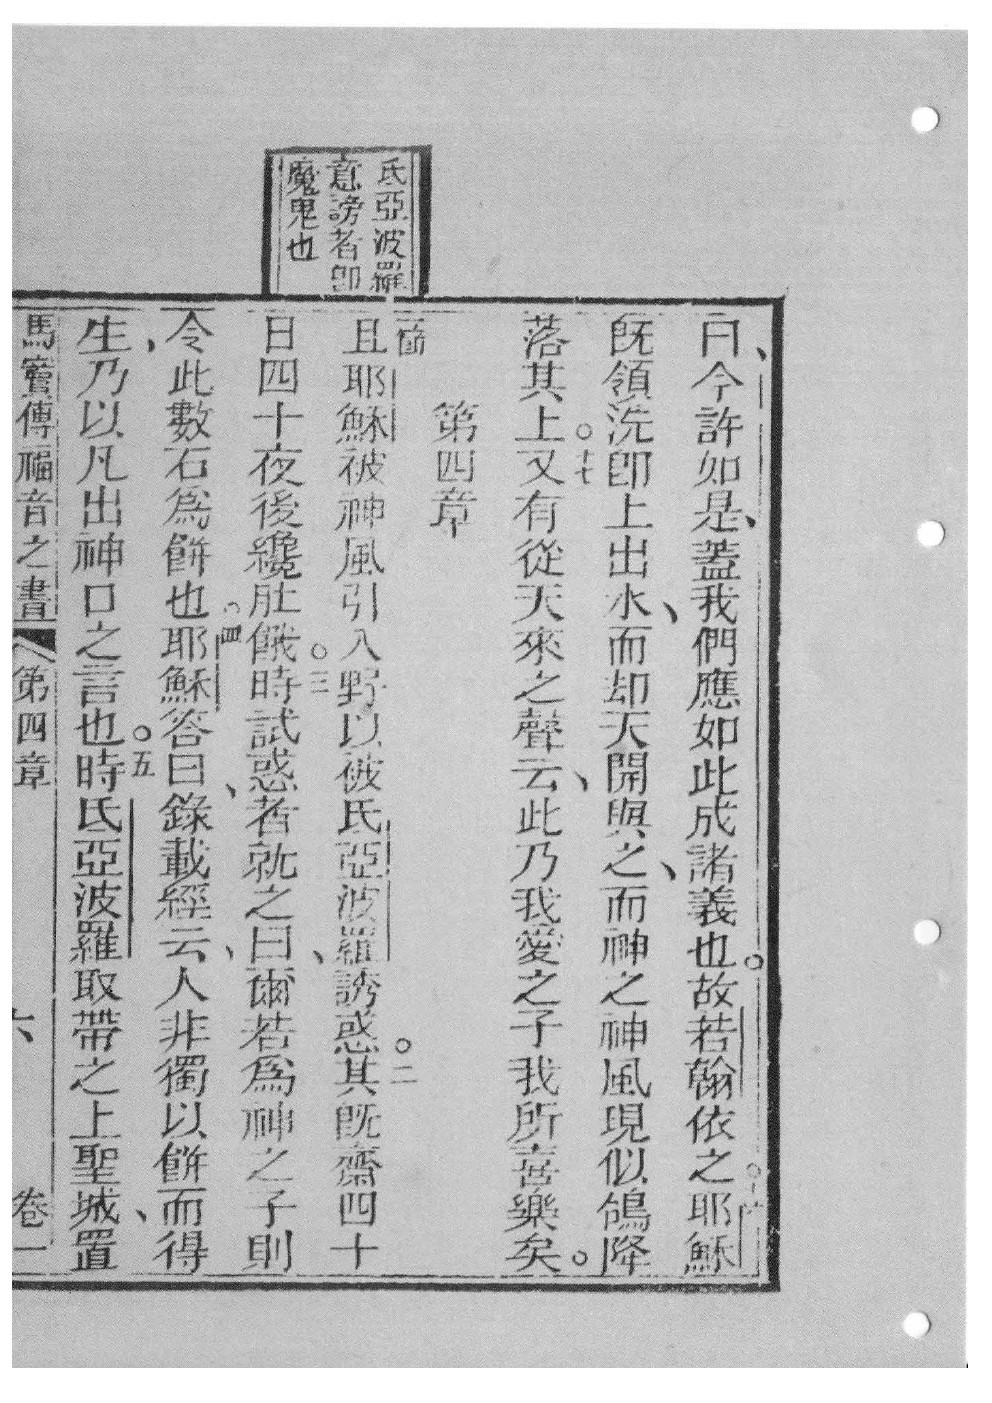 氏亞波羅
意謗者卽
魔鬼也
曰、今許如是、蓋我們應如此成諸義也。故若翰依之。十六耶穌
旣領洗卽上出水、而却天開與之、而神之神風現似鴿降
落其上。十七又有從天來之聲云、此乃我愛之子我所喜樂矣。
第四章
一節且耶穌被神風引入野以被氏亞波羅誘惑。二其旣齋四十
日四十夜後纔肚餓。三時試惑者就之曰、爾若爲神之子則
令此數石爲餅也。四耶穌答曰、錄載經云、人非獨以餅而得
生、乃以凡出神口之言也。五時氏亞波羅取帶之上聖城、置
馬竇傳福音之書 第四章 六 卷一